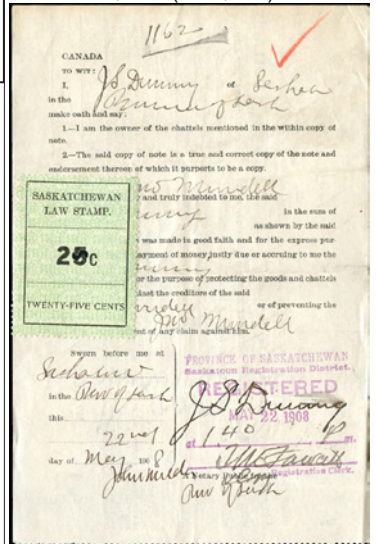 1162
CANADA
TO WIT:
I, J.S. of
in the
make oath and say:
1.—I am the owner of the chattels mentioned in the within copy of
note.
2.—The said copy of note is a true and correct copy of the note and
endorsement thereon of which it purports to be a copy.
Mundell
y and truly indebted to me, the said
in the sum of
as shown by the said
was made in good faith and for the express pur-
ayment of money justly due or accruing to me the
or the purpose of protecting the goods and chattels
inst the creditors of the said
Mundell or of preventing the
Jno Mundell
nt of any claim against him.
SASKATCHEWAN
LAW STAMP.
25c
TWENTY-FIVE CENTS
Sworn before me at
in the Prov of Sask
this
22nd
day of May 1908
PROVINCE OF SASKATCHEWAN
Saskatoon Registration District.
REGISTERED
J.S.
MAY 22 1908
at 1 40 P m.
Registration Clerk.
A Notary Public
Prov of Sask